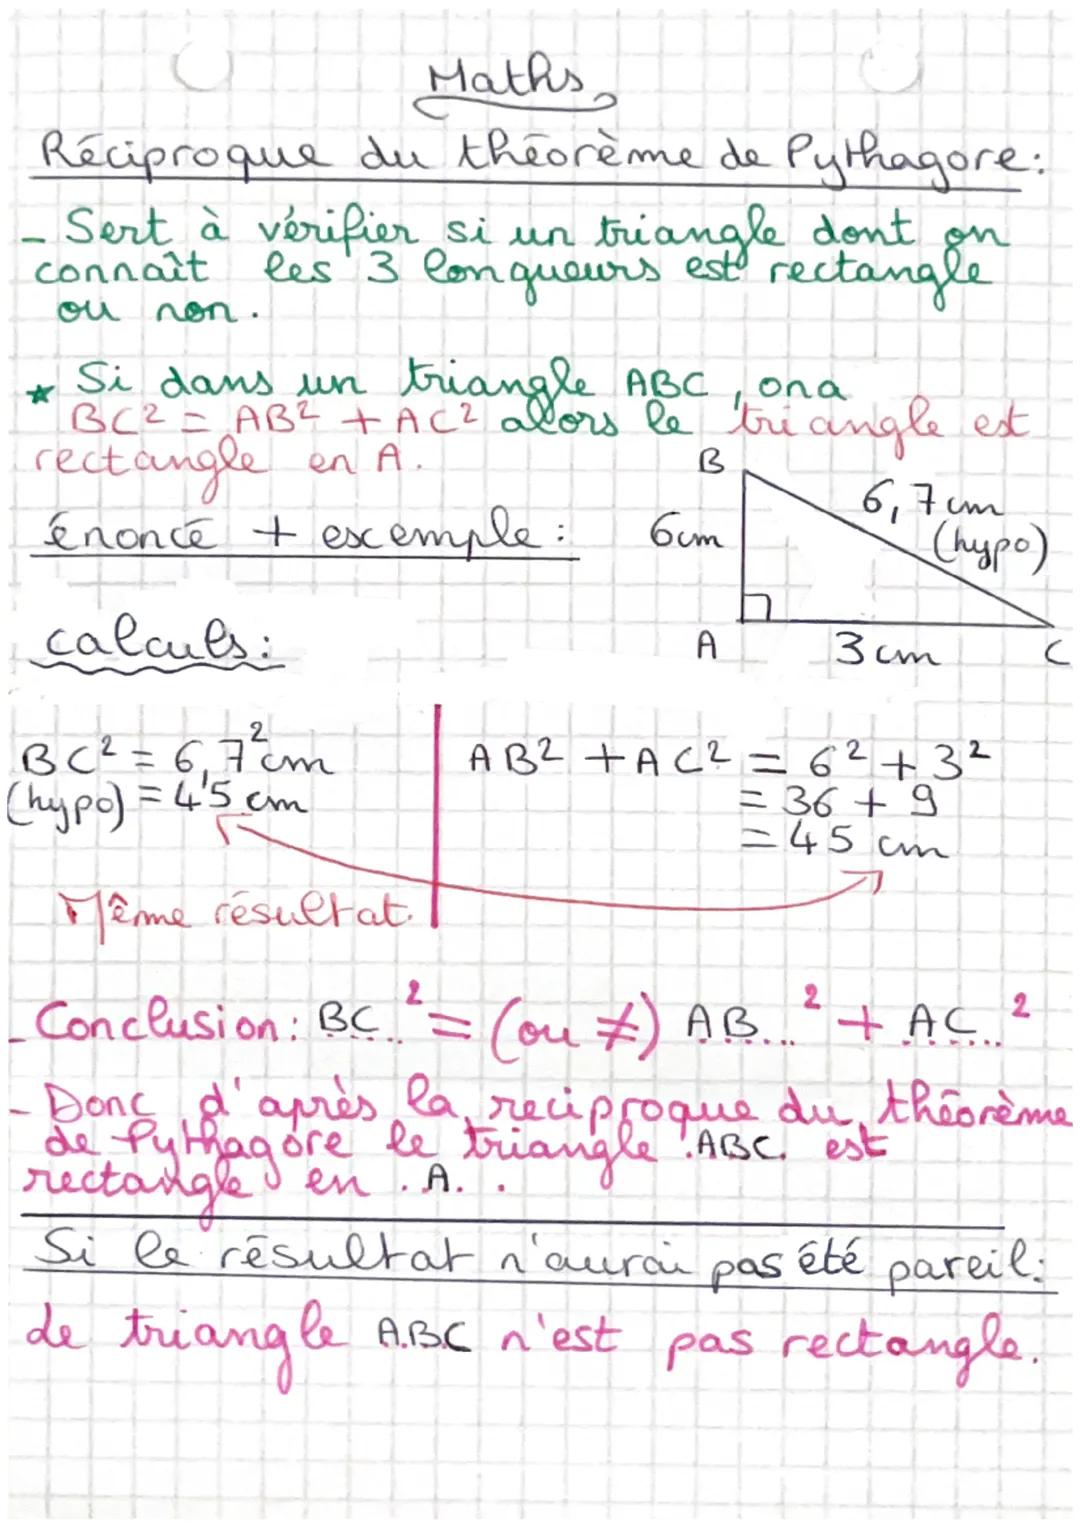 Maths
Réciproque du théorème de Pythagore:
- Sert à vérifier si un triangle dont on
connaît les 3 longueurs est rectangle
ou non.
★ Si dans un triangle ABC, on a
BC² = AB² + AC² alors le triangle est
rectangle en A.
énoncé + excemple:
B
6,7 cm
(hypo)
6cm
A
3 cm
C
calculs:
BC² = 6,7² cm
(hypo) = 45 cm
AB² + AC² = 6² + 3²
= 36 + 9
= 45 cm
Même résultat.
- Conclusion: BC...² = (ou ≠) AB...² + AC...²
- Donc d'après la reciproque du théorème
de Pythagore le triangle .ABC. est
rectangle en .A. .
Si le résultat n'aurai pas été pareil:
Le triangle ABC n'est pas rectangle.